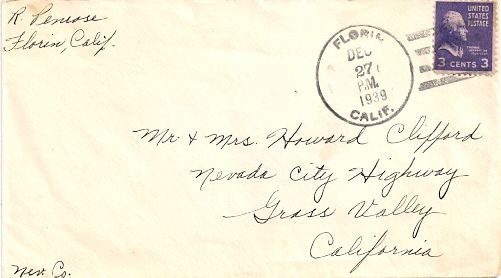 R. Penrose
Florin, Calif.
FLORIN
DEC
27
P.M.
1939
CALIF.
UNITED
STATES
POSTAGE
3 CENTS 3
Mr. & Mrs. Howard Clifford
Nevada City Highway
Grass Valley
California
Nev. Co.